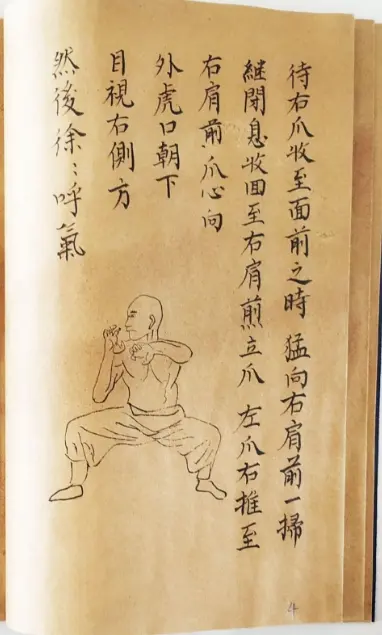 待右爪收至面前之時 猛向右肩前一掃
繼閉息收回至右肩煎立爪 左爪右推至
右肩前 爪心向
外虎口朝下
目視右側方
然後徐〻呼氣
4